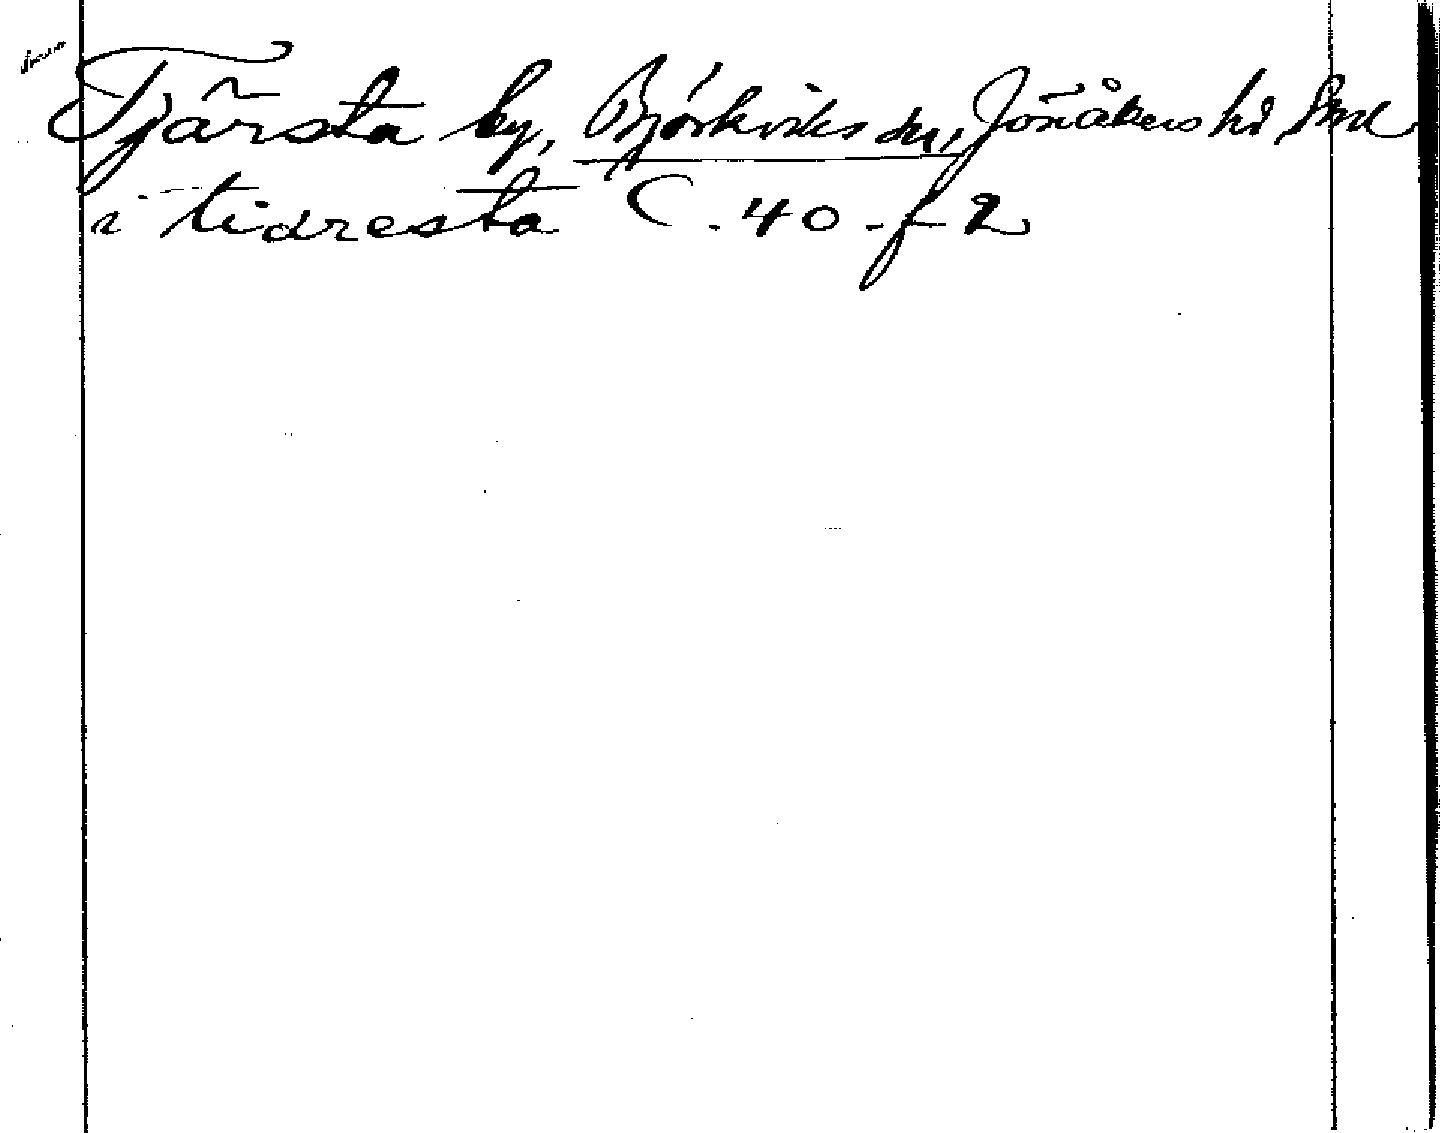 Tjärsta by, Björkviks sn, Jönåkers hd Sml
i tidresta C. 40. f 2